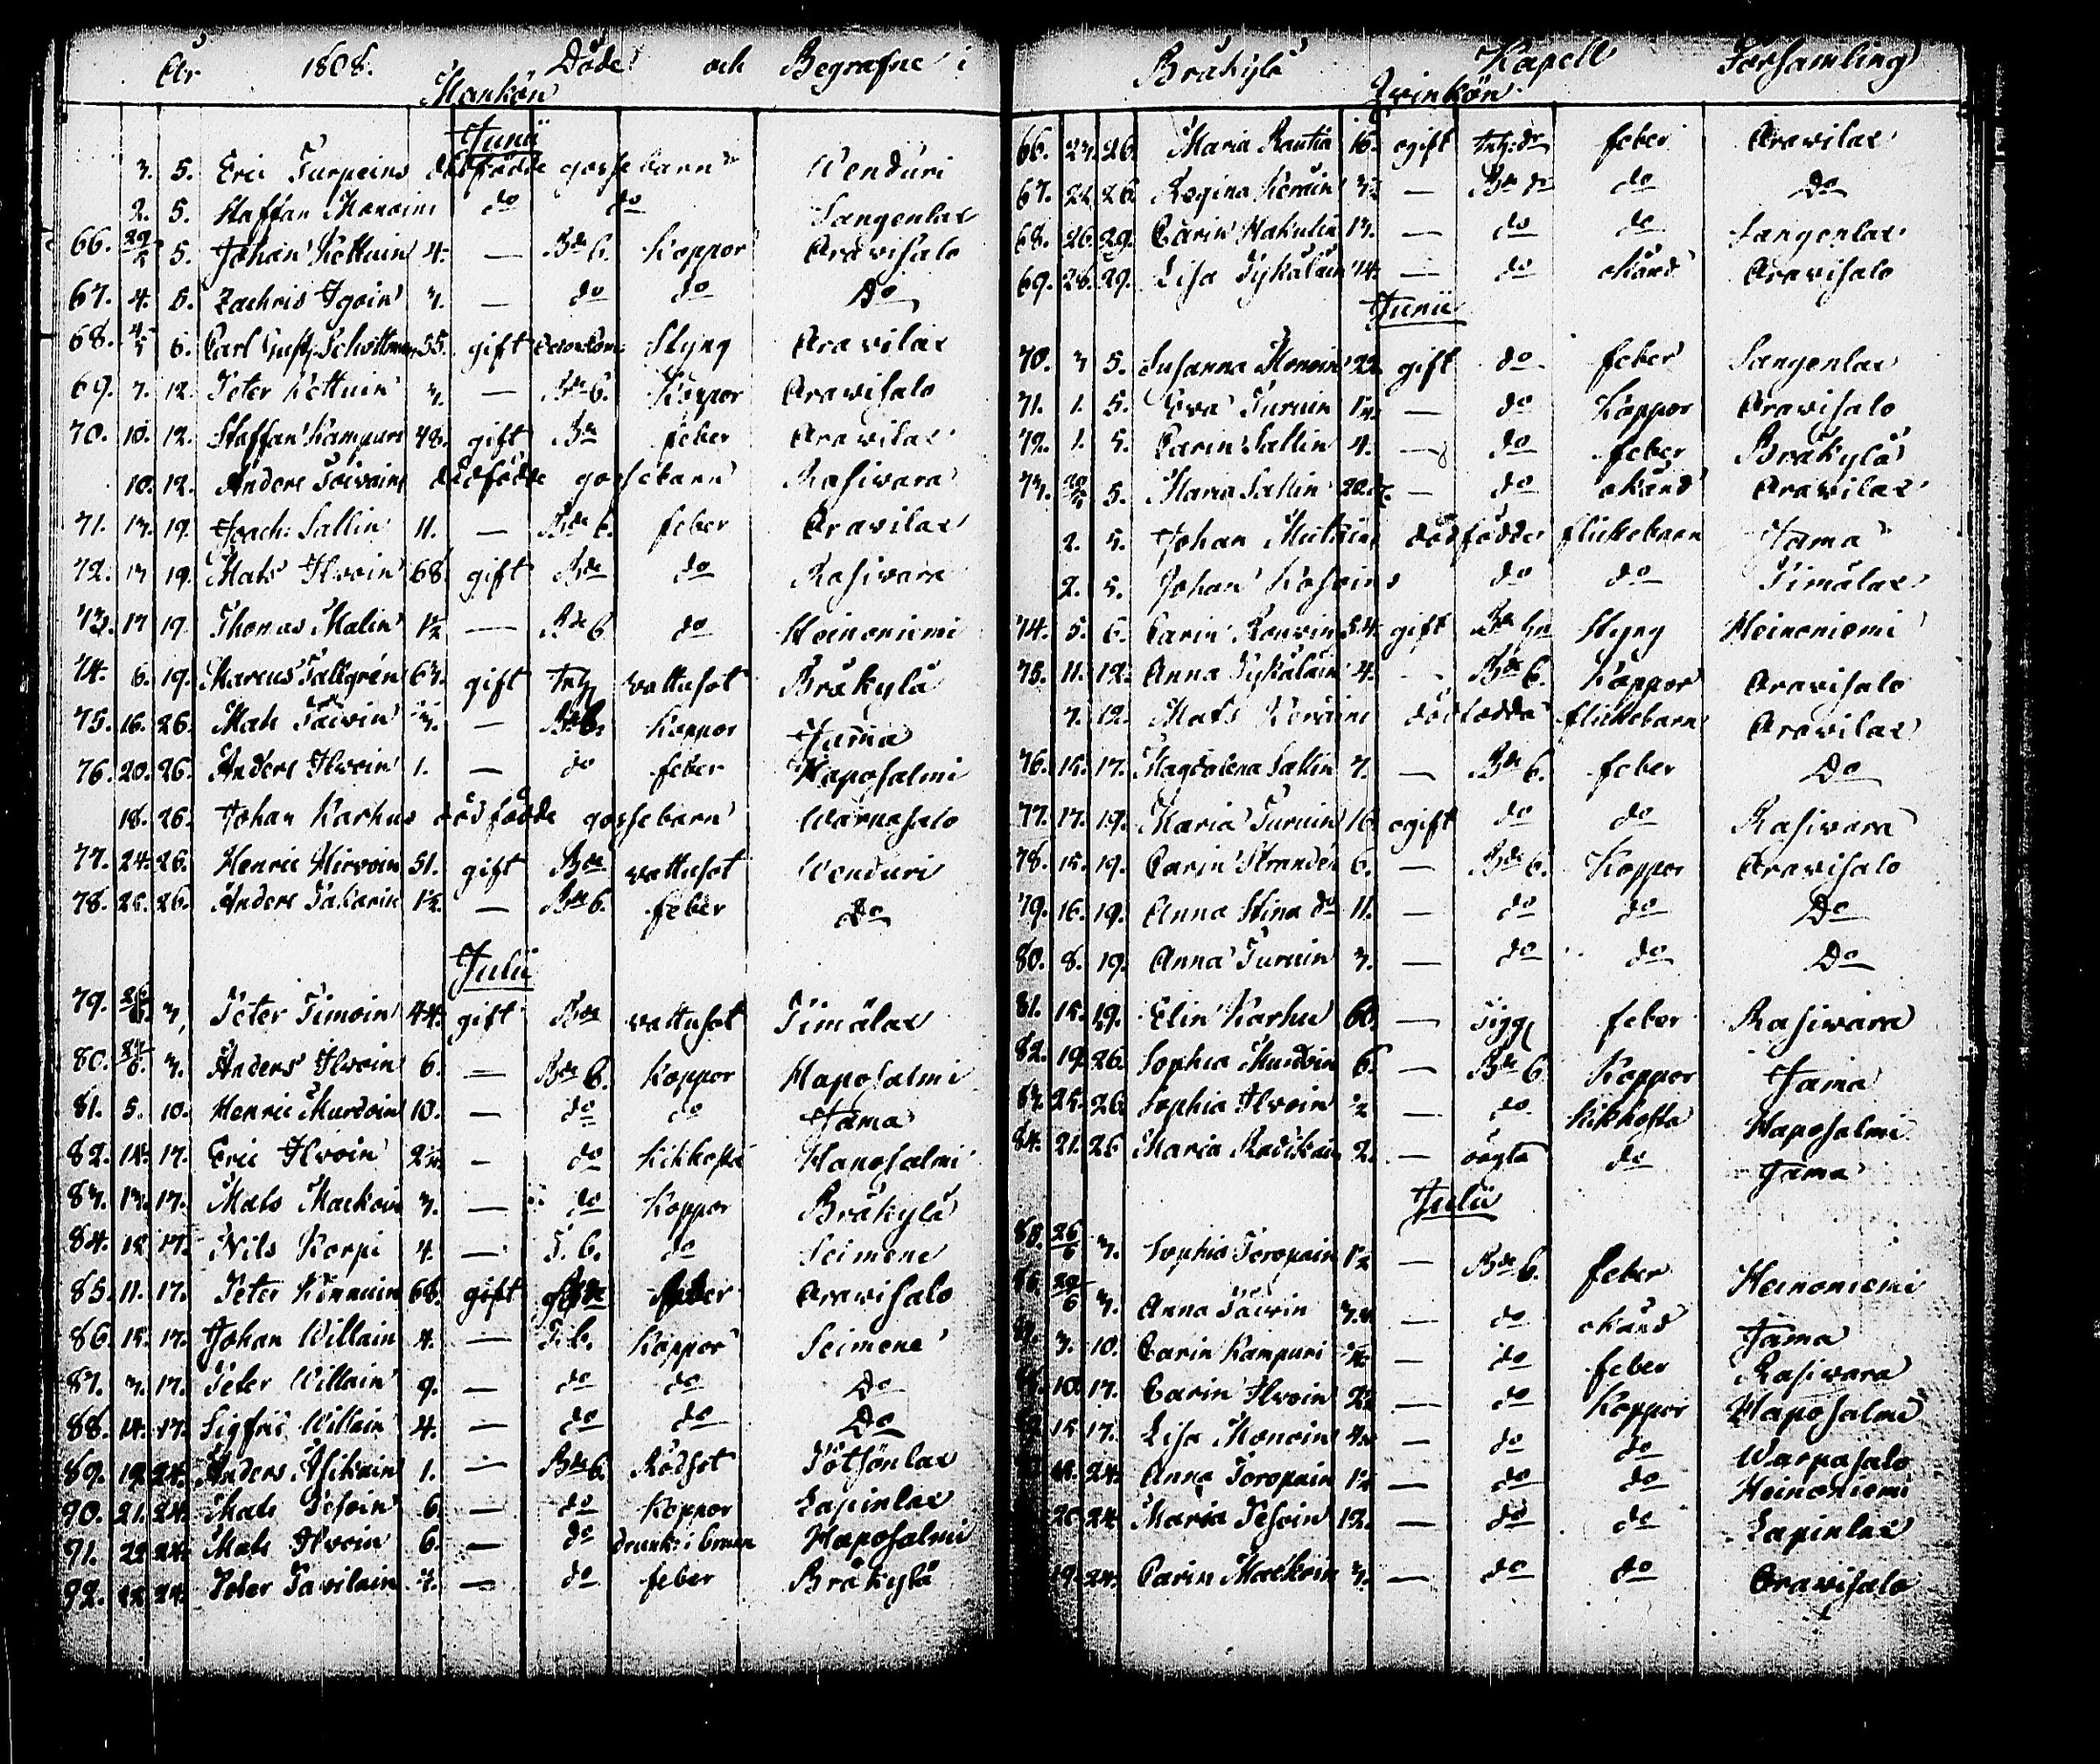 År 1808. Döde och Begrafne i
Mankön
Junii
3. 5. Eric Turpeins dödfödde gossebarn Wenduri
2. 5. Staffan Mononi do do Sangenlax
66. 29/5 5. Johan Kettuin 4. — Bde b. Koppor Oravisalo
67. 4. 5. Zachris Igoin 3. — do do Do
68. 4/5 6. Carl Gust. Schottman 55. gift Styng Oravilax
69. 7. 12. Peter Kettuin 3. — Bde b. Koppor Oravisalo
70. 10. 12. Staffan Kampuri 48. gift Bde feber Oravilax
10. 12. Anders Toivains dödfödde gossebarn Rasivara
71. 13. 19. Joach: Sallin 11. — Bde b. feber Oravilax
72. 13 19. Mats Ilvoin 68. gift Bde do Rasivara
73. 17 19. Thomas Malin 1½ — Bde b do Heinoniemi
74. 6. 19. Marcus Tallgren 63. gift wattusot Bräkylä
75. 16. 26. Mats Päivin — Bde b. Koppor Jama
76. 20. 26. Anders Ilvoin 1. — do feber Haposalmi
18. 26. Johan Karhus dödfödde gossebarn Warpasalo
77. 24. 26. Henric Hirvoin 51. gift Bde wattusot Wenduri
78. 26. Anders Pakarin 1½ — Bde b. feber Do
Julii
79. 3. Peter Timoin 44. gift Bde wattusot Timälax
80. 3. Anders Ilvoin 6. — Bde b. Koppor Haposalmi
81. 5. 10. Henric Murdoin 10. — do do Jama
82. 17. Eric Ilvoin — do Kikhosta Haposalmi
83. 13. 17. Mats Mackoin 3. — do Koppor Bräkylä
84. 17. Nils Korpi 4. — T. b. do Seimene
85. 11. 17. Peter Könnuin 68. gift feber Oravisalo
86. 15. 17. Johan Willain 4. — T. b. Koppor Seimene
87. 3. 17. Peter Willain 9. — do do Do
88. 14. 17. Sigfrid Willain 4. — do do Do
89. 19 24. Anders Asikain 1. — Bde b. Rödsot Pötsönlax
90. 21. 24. Mats Pesoin 6. — do Koppor Lapinlax
91. 22 24. Mats Ilvoin 6. — do drunk: i brunn Haposalmi
92. 22 24. Peter Pavilain — do feber Bräkylä
Bräkylä Kapell Församling
Qvinkön
66. 23. 26. Maria Rautia 16. ogift feber Oravilax
67. 22. 26. Regina Keroin — Bde do Do
68. 26. 29. Carin Hakulin 13. — do do Sangenlax
69. 26. 29. Lisa Tykäläin — do okänd Oravisalo
Junii
70. 3 5. Susanna Mononi 22 gift do feber Sangenlax
71. 1. 5. Eva Turuin — do Koppor Oravisalo
72. 1. 5. Carin Sallin 4. — do feber Bräkylä
73. 5. Maria Sallin — do okänd Oravilax
2. 5. Johan Mutkins dödfödde flickebarn Jama
2. 5. Johan Kosoins do do Timälax
74. 5. 6. Carin Rouvin 54. gift Styng Heinoniemi
75. 11. 12. Anna Tykäläin 4. — Bde b. Koppor Oravisalo
7. 12. Mats Keroins dödfödda flickebarn Oravilax
76. 15. 17. Magdalena Sallin 7. — Bde b. feber Do
77. 17. 19. Maria Turuin 16 ogift do do Rasivara
78. 15. 19. Carin Stranden 6. — Bde b. Koppor Oravisalo
79. 16. 19. Anna Stina do 11. — do do Do
80. 8. 19. Anna Turuin 3. — do do Do
81. 15. 19. Elin Karhu 60. — Tigg feber Rasivara
82. 19. 26. Sophia Murdoin 6. — Bde b Koppor Jama
83. 25. 26. Sophia Ilvoin ½ — do Kikhosta Haposalmi
84. 21. 26 Maria Radikain 2. — oägta do Jama
Julii
85. 26/6 3. Sophia Toropain 1½ — Bde b. feber Heinoniemi
3. Anna Päivin — do okänd Jama
3. 10. Carin Kampuri — do feber Rasivara
10. 17. Carin Ilvoin — do Koppor Haposalmi
15 17. Lisa Mononi — do do Warpasalo
24. Anna Toropain 1½ — do do Heinoniemi
20 24 Maria Pesoin 12. — do do Lapinlax
19. 24. Carin Mackoin 3. — do do Oravisalo